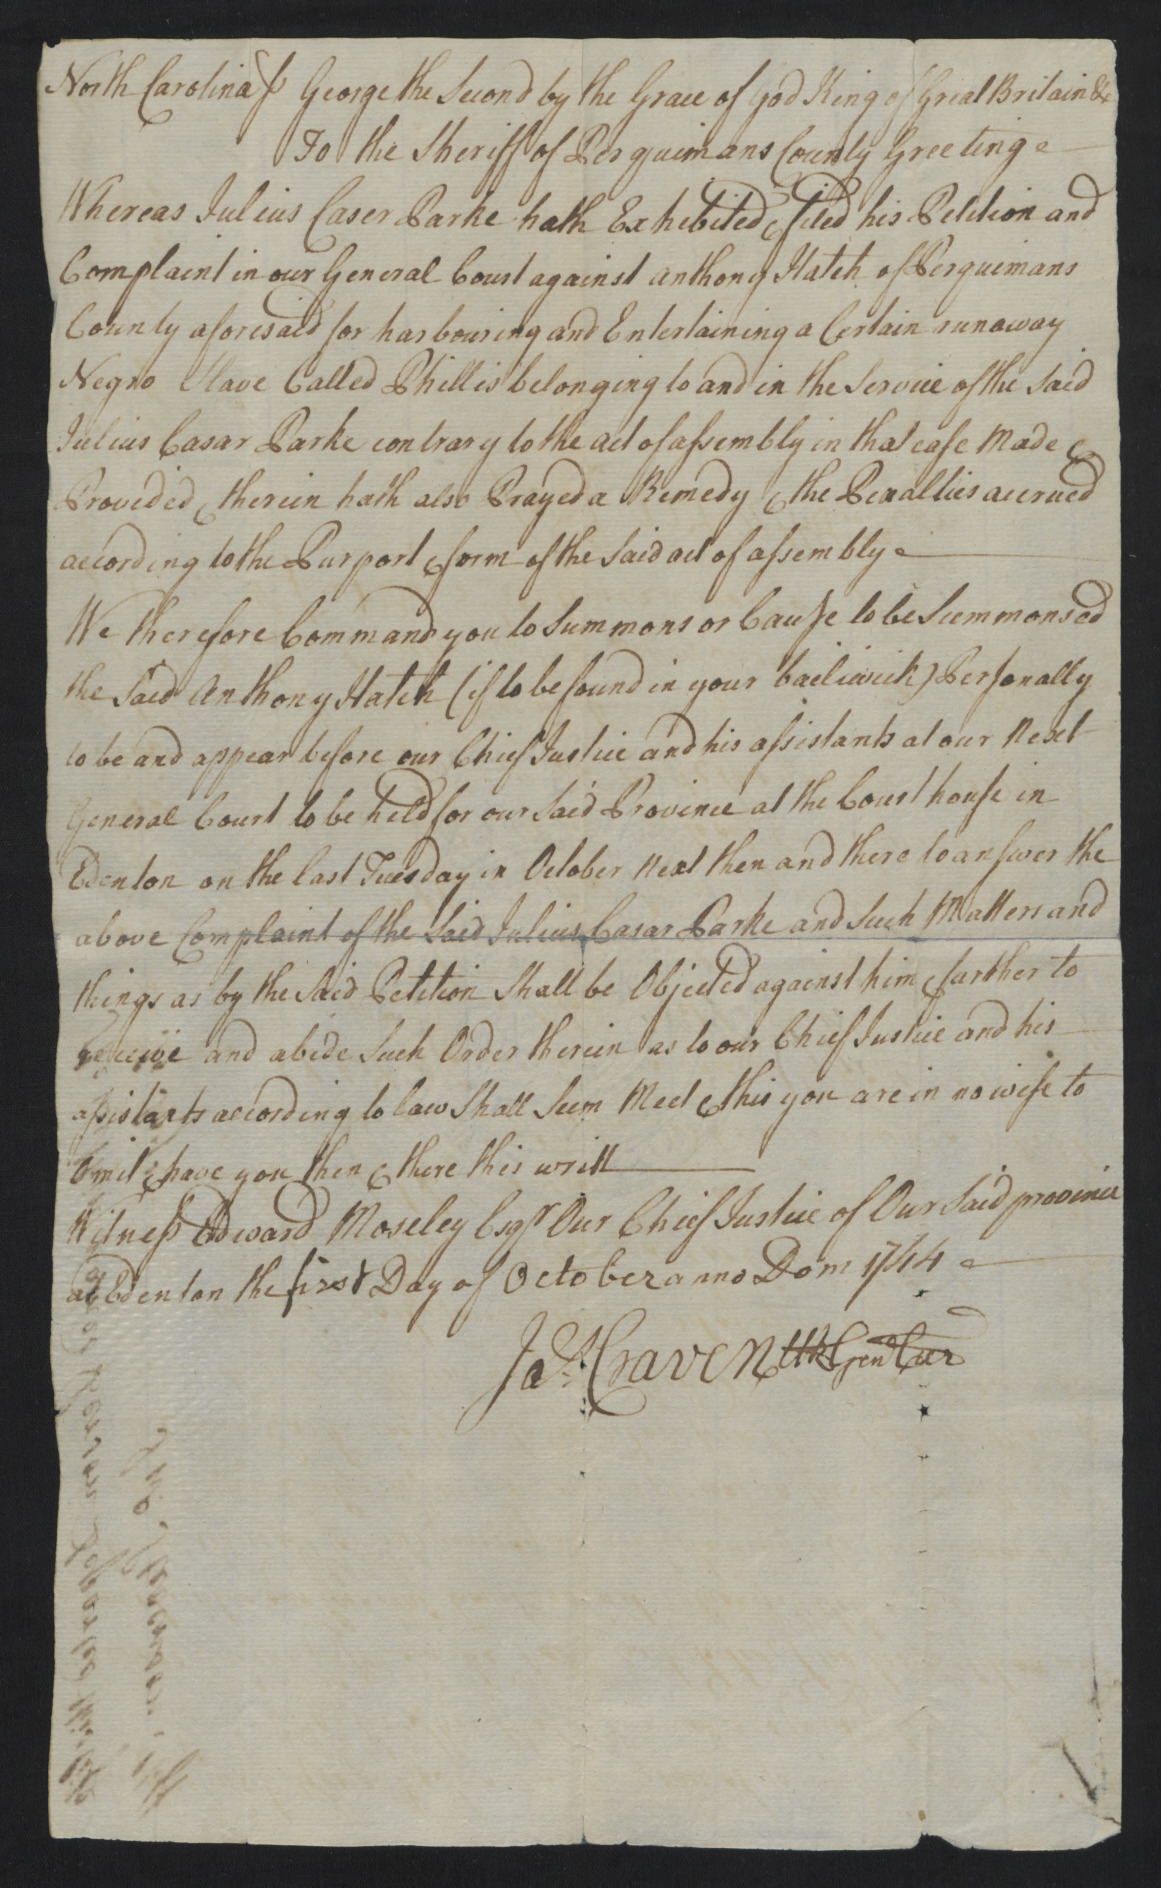 North Carolina ss George the Second by the Grace of God King of Great Britain &c
To the Sheriff of Perquimans County Greeting
Whereas Julius Caser Parke hath Exhibited & filed his Petition and
Complaint in our General Court against Anthony Hatch of Perquimans
County aforesaid for harbouring and Entertaining a Certain runaway
Negro Slave Called Phillis belonging to and in the Service of the Said
Julius Casar Parke contrary to the act of assembly in that case Made &
Provided & therein hath also Prayed a Remedy & the Penalties accrued
according to the Purport & form of the Said act of assembly
We therefore Command you to Summons or Cause to be Summonsed
the Said Anthony Hatch (if to be found in your bailiwick) Personally
to be and appear before our Chief Justice and his assistants at our Next
General Court to be held for our Said Province at the Court house in
Edenton on the last Tuesday in October Next then and there to answer the
above Complaint of the Said Julius Casar Parke and Such Matters and
things as by the Said Petition Shall be Objected against him & farther to
receive and abide Such Order therein as to our Chief Justice and his
assistants according to law Shall Seem Meet & this you are in no wise to
Omit & have you then & there this writt
Witness Edward Moseley Esqr Our Chief Justice of Our Said province
at Edenton the first Day of October anno Dom 1744
Jas. Craven Clk Genl Cur